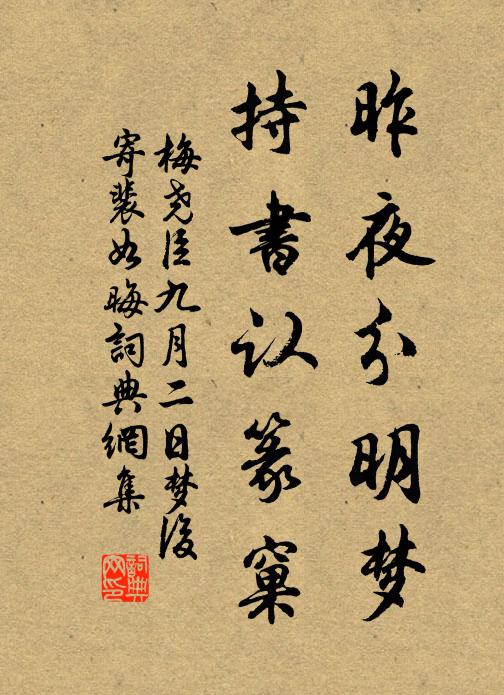 昨夜分明梦
持書认篆窠
梅尧臣九月二日梦後
寄裴如晦詞典網集
詞典
网印